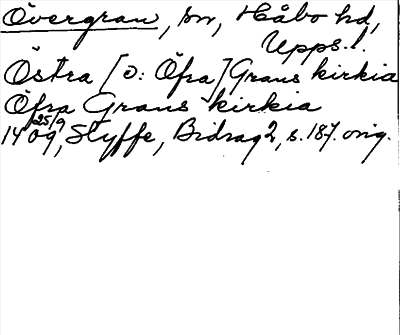 Övergran, sn, Håbo hd,
Upps.l.
Östra [ɔ: Öfra] Grans kirkia
Öfra Grans kirkia
1409 25/9, Styffe, Bidrag 2, s. 187. orig.